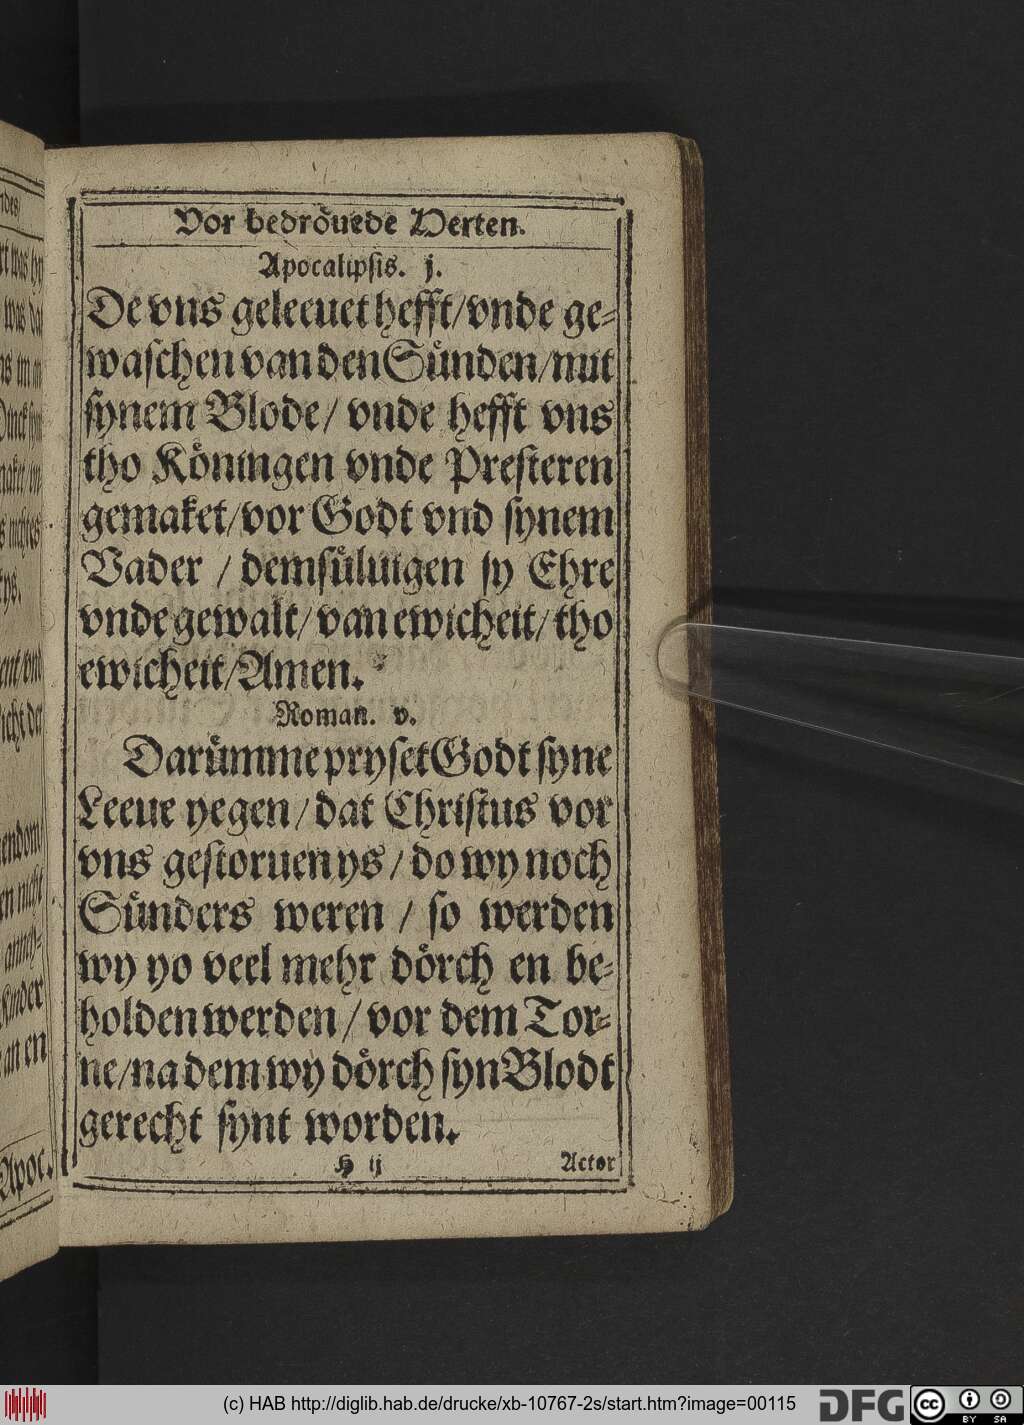 Vor bedröuede Herten.
Apocalipsis. j.
De vns geleeuet hefft/vnde ge-
waschen van den Sünden/mit
synem Blode/ vnde hefft vns
tho Köningen vnde Presteren
gemaket/vor Godt vnd synem
Vader / demsüluigen sy Ehre
vnde gewalt/van ewicheit/tho
ewicheit/Amen.
Roman. v.
Darümme pryset Godt syne
Leeue yegen/dat Christus vor
vns gestoruen ys/do wy noch
Sünders weren / so werden
wy yo veel mehr dörch en be-
holden werden/vor dem Tor-
ne/na dem wy dörch syn Blodt
gerecht synt worden.
H ij
Actor
Apoc.
(c) HAB http://diglib.hab.de/drucke/xb-10767-2s/start.htm?image=00115
DFG
cc
BY SA